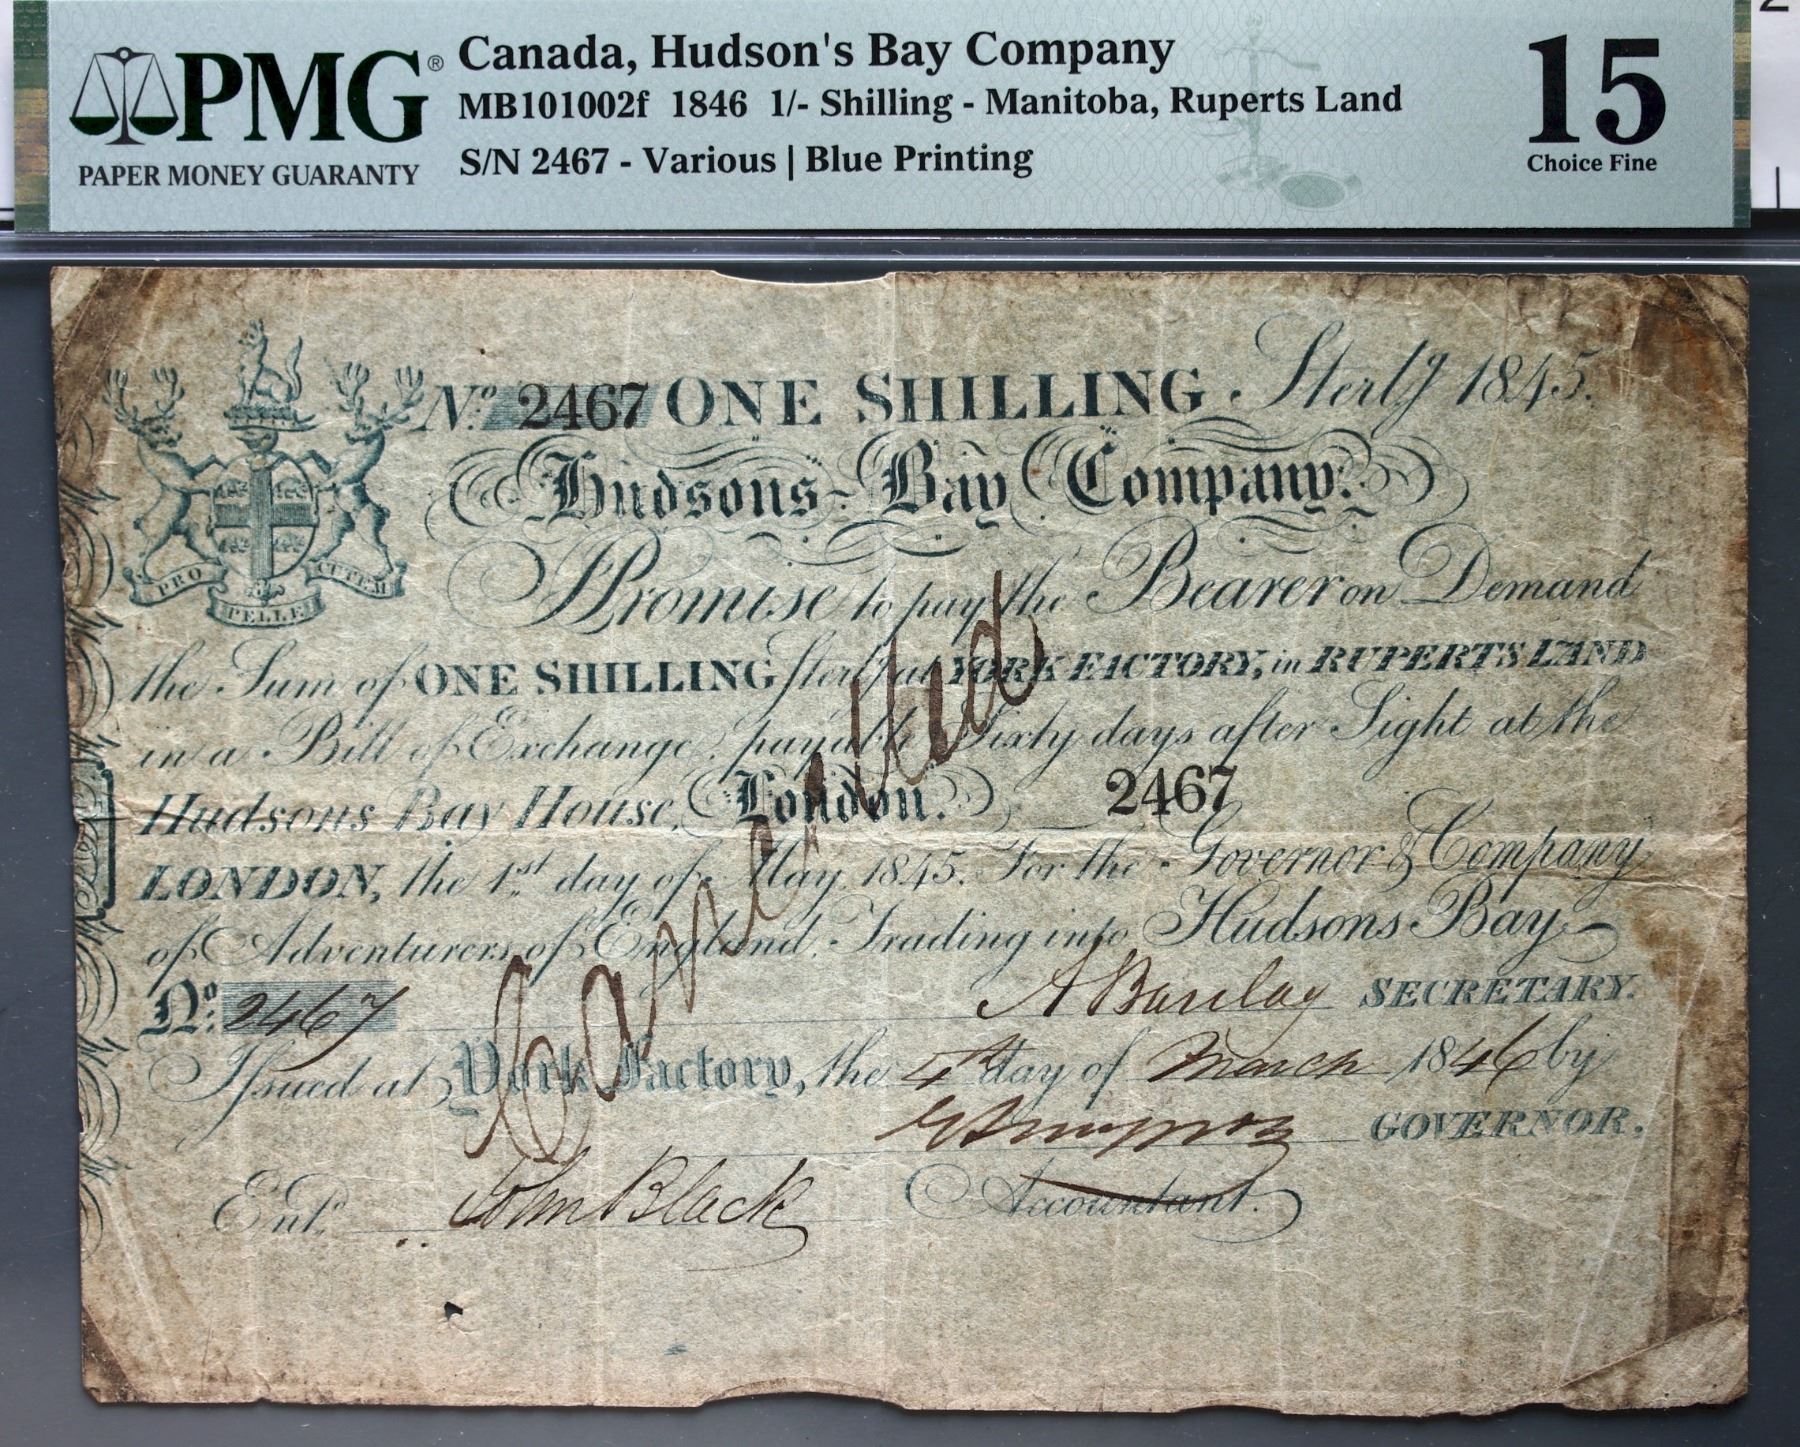 PMG®
PAPER MONEY GUARANTY
Canada, Hudson's Bay Company
MB101002f 1846 1/- Shilling - Manitoba, Ruperts Land
S/N 2467 - Various | Blue Printing
15
Choice Fine
No. 2467 ONE SHILLING Sterlg 1845.
Hudsons-Bay Company.
PRO PELLE CUTEM
Promise to pay the Bearer on Demand
the Sum of ONE SHILLING Sterlg at YORK FACTORY, in RUPERTS LAND
in a Bill of Exchange, payable Sixty days after Sight at the
Hudsons Bay House, London. 2467
LONDON, the 1st day of May 1845. For the Governor & Company
of Adventurers of England, Trading into Hudsons Bay
No: 2467 A Barclay SECRETARY.
Issued at York Factory, the 4th day of March 1846 by
GSimpson GOVERNOR.
Entd John Black Accountant.
Cancelled